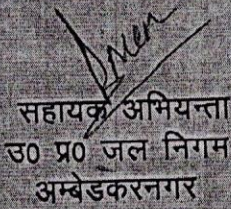 सहायक अभियन्ता
उ0 प्र0 जल निगम
अम्बेडकरनगर